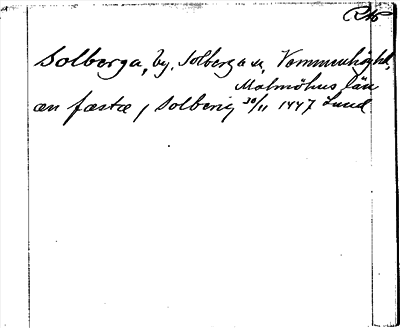 Solberga, by, Solberga sn, Vemmenhögs hd,
Malmöhus län
æn fæstæ j Solberig 30/11 1447 Lund